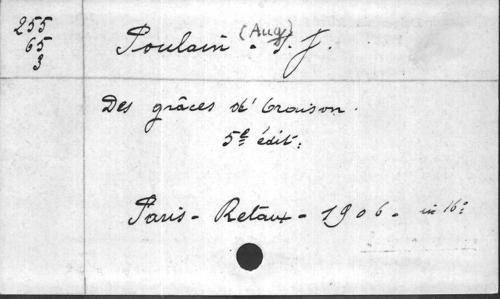 255
65
3
Poulain (Aug) - S. J.
Des grâces d'Oraison.
5e édit.
Paris - Retaux - 1906 - in 16°